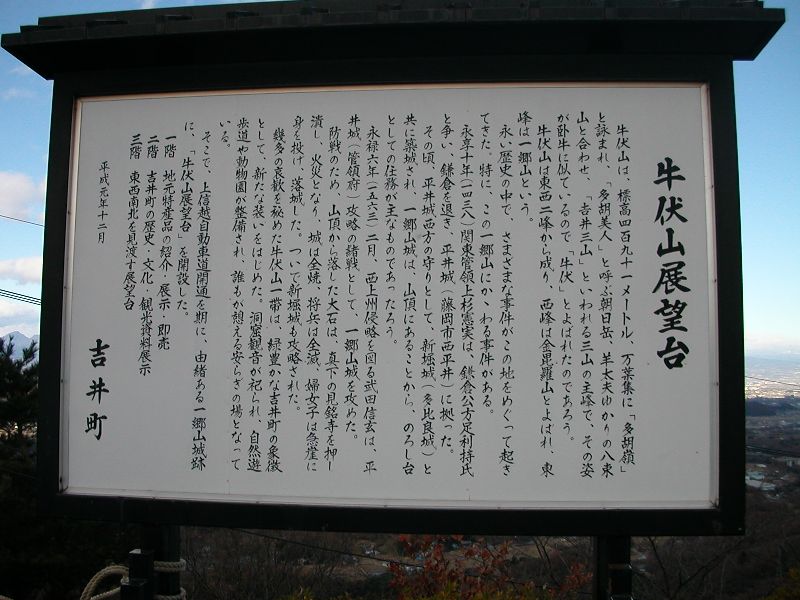 牛伏山展望台
牛伏山は、標高四百九十一メートル、万葉集に「多胡嶺」
と詠まれ、「多胡美人」と呼ぶ朝日岳、羊太夫ゆかりの八束
山と合わせ、「吉井三山」といわれる三山の主峰で、その姿
が卧牛に似ているので「牛伏」とよばれたのであろう。
牛伏山は東西二峰から成り、西峰は金毘羅山とよばれ、東
峰は一郷山という。
永い歴史の中で、さまざまな事件がこの地をめぐって起き
てきた。特に、この一郷山にかゝわる事件がある。
永享十年(一四三八)関東管領上杉憲実は、鎌倉公方足利持氏
と争い、鎌倉を退き、平井城(藤岡市西平井)に拠った。
その頃、平井城西方の守りとして、新堀城(多比良城)と
共に築城され、一郷山城は、山頂にあることから、のろし台
としての任務が主なものであったろう。
永禄六年(一五六三)二月、西上州侵略を図る武田信玄は、平
井城(管領府)攻略の緒戦として、一郷山城を攻めた。
防戦のため、山頂から落した大石は、真下の見銘寺を押し
潰し、火災となり、城は全焼、将兵は全滅、婦女子は急崖に
身を投げ、落城した。ついで新堀城も攻略された。
幾多の哀歓を秘めた牛伏山一帯は、緑豊かな吉井町の象徴
として、新たな装いをはじめた。洞窟観音が祀られ、自然遊
歩道や動物園が整備され、誰もが憩える安らぎの場となって
いる。
そこで、上信越自動車道開通を期に、由緒ある一郷山城跡
に、「牛伏山展望台」を開設した。
一階 地元特産品の紹介・展示・即売
二階 吉井町の歴史・文化・観光資料展示
三階 東西南北を見渡す展望台
平成元年十二月
吉井町